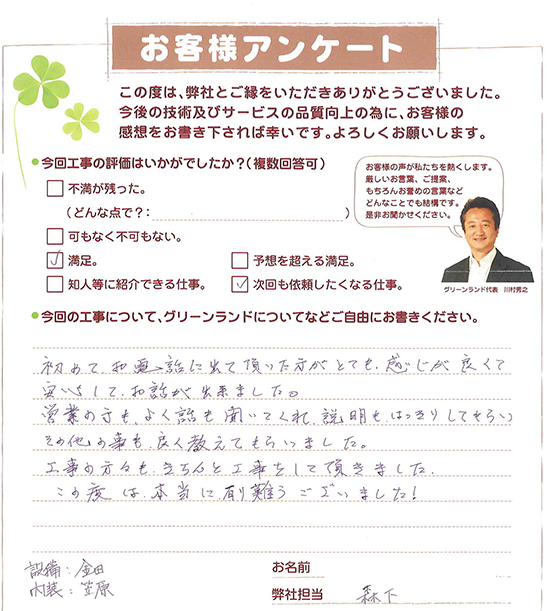 お客様アンケート
この度は、弊社とご縁をいただきありがとうございました。
今後の技術及びサービスの品質向上の為に、お客様の
感想をお書き下されば幸いです。よろしくお願いします。
●今回工事の評価はいかがでしたか?(複数回答可)
不満が残った。
(どんな点で?: )
可もなく不可もない。
満足。
予想を超える満足。
知人等に紹介できる仕事。
次回も依頼したくなる仕事。
お客様の声が私たちを熱くします。
厳しいお言葉、ご提案、
もちろんお誉めの言葉など
どんなことでも結構です。
是非お聞かせください。
グリーンランド代表 川村秀之
●今回の工事について、グリーンランドについてなどご自由にお書きください。
初めて、お電話に出て頂いた方がとても、感じが良くて
安心して、お話が出来ました。
営業の方も、よく話も聞いてくれ、説明も、はっきりしてもらい
その他の事も、良く教えてもらいました。
工事の方々も、きちんと工事をして頂きました。
この度は、本当に、有り難うございました!
設備:金田
内装:笠原
お名前
弊社担当 森下